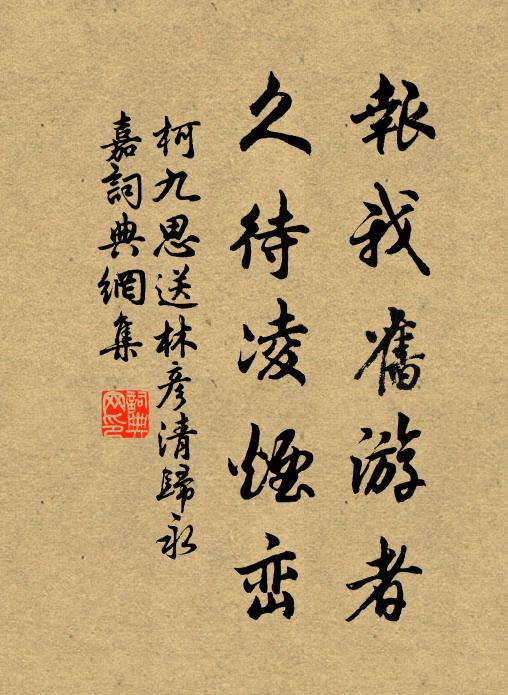 報我舊游者
久待凌煙峦
柯九思送林彦清歸永
嘉詞典網集
詞典
网印